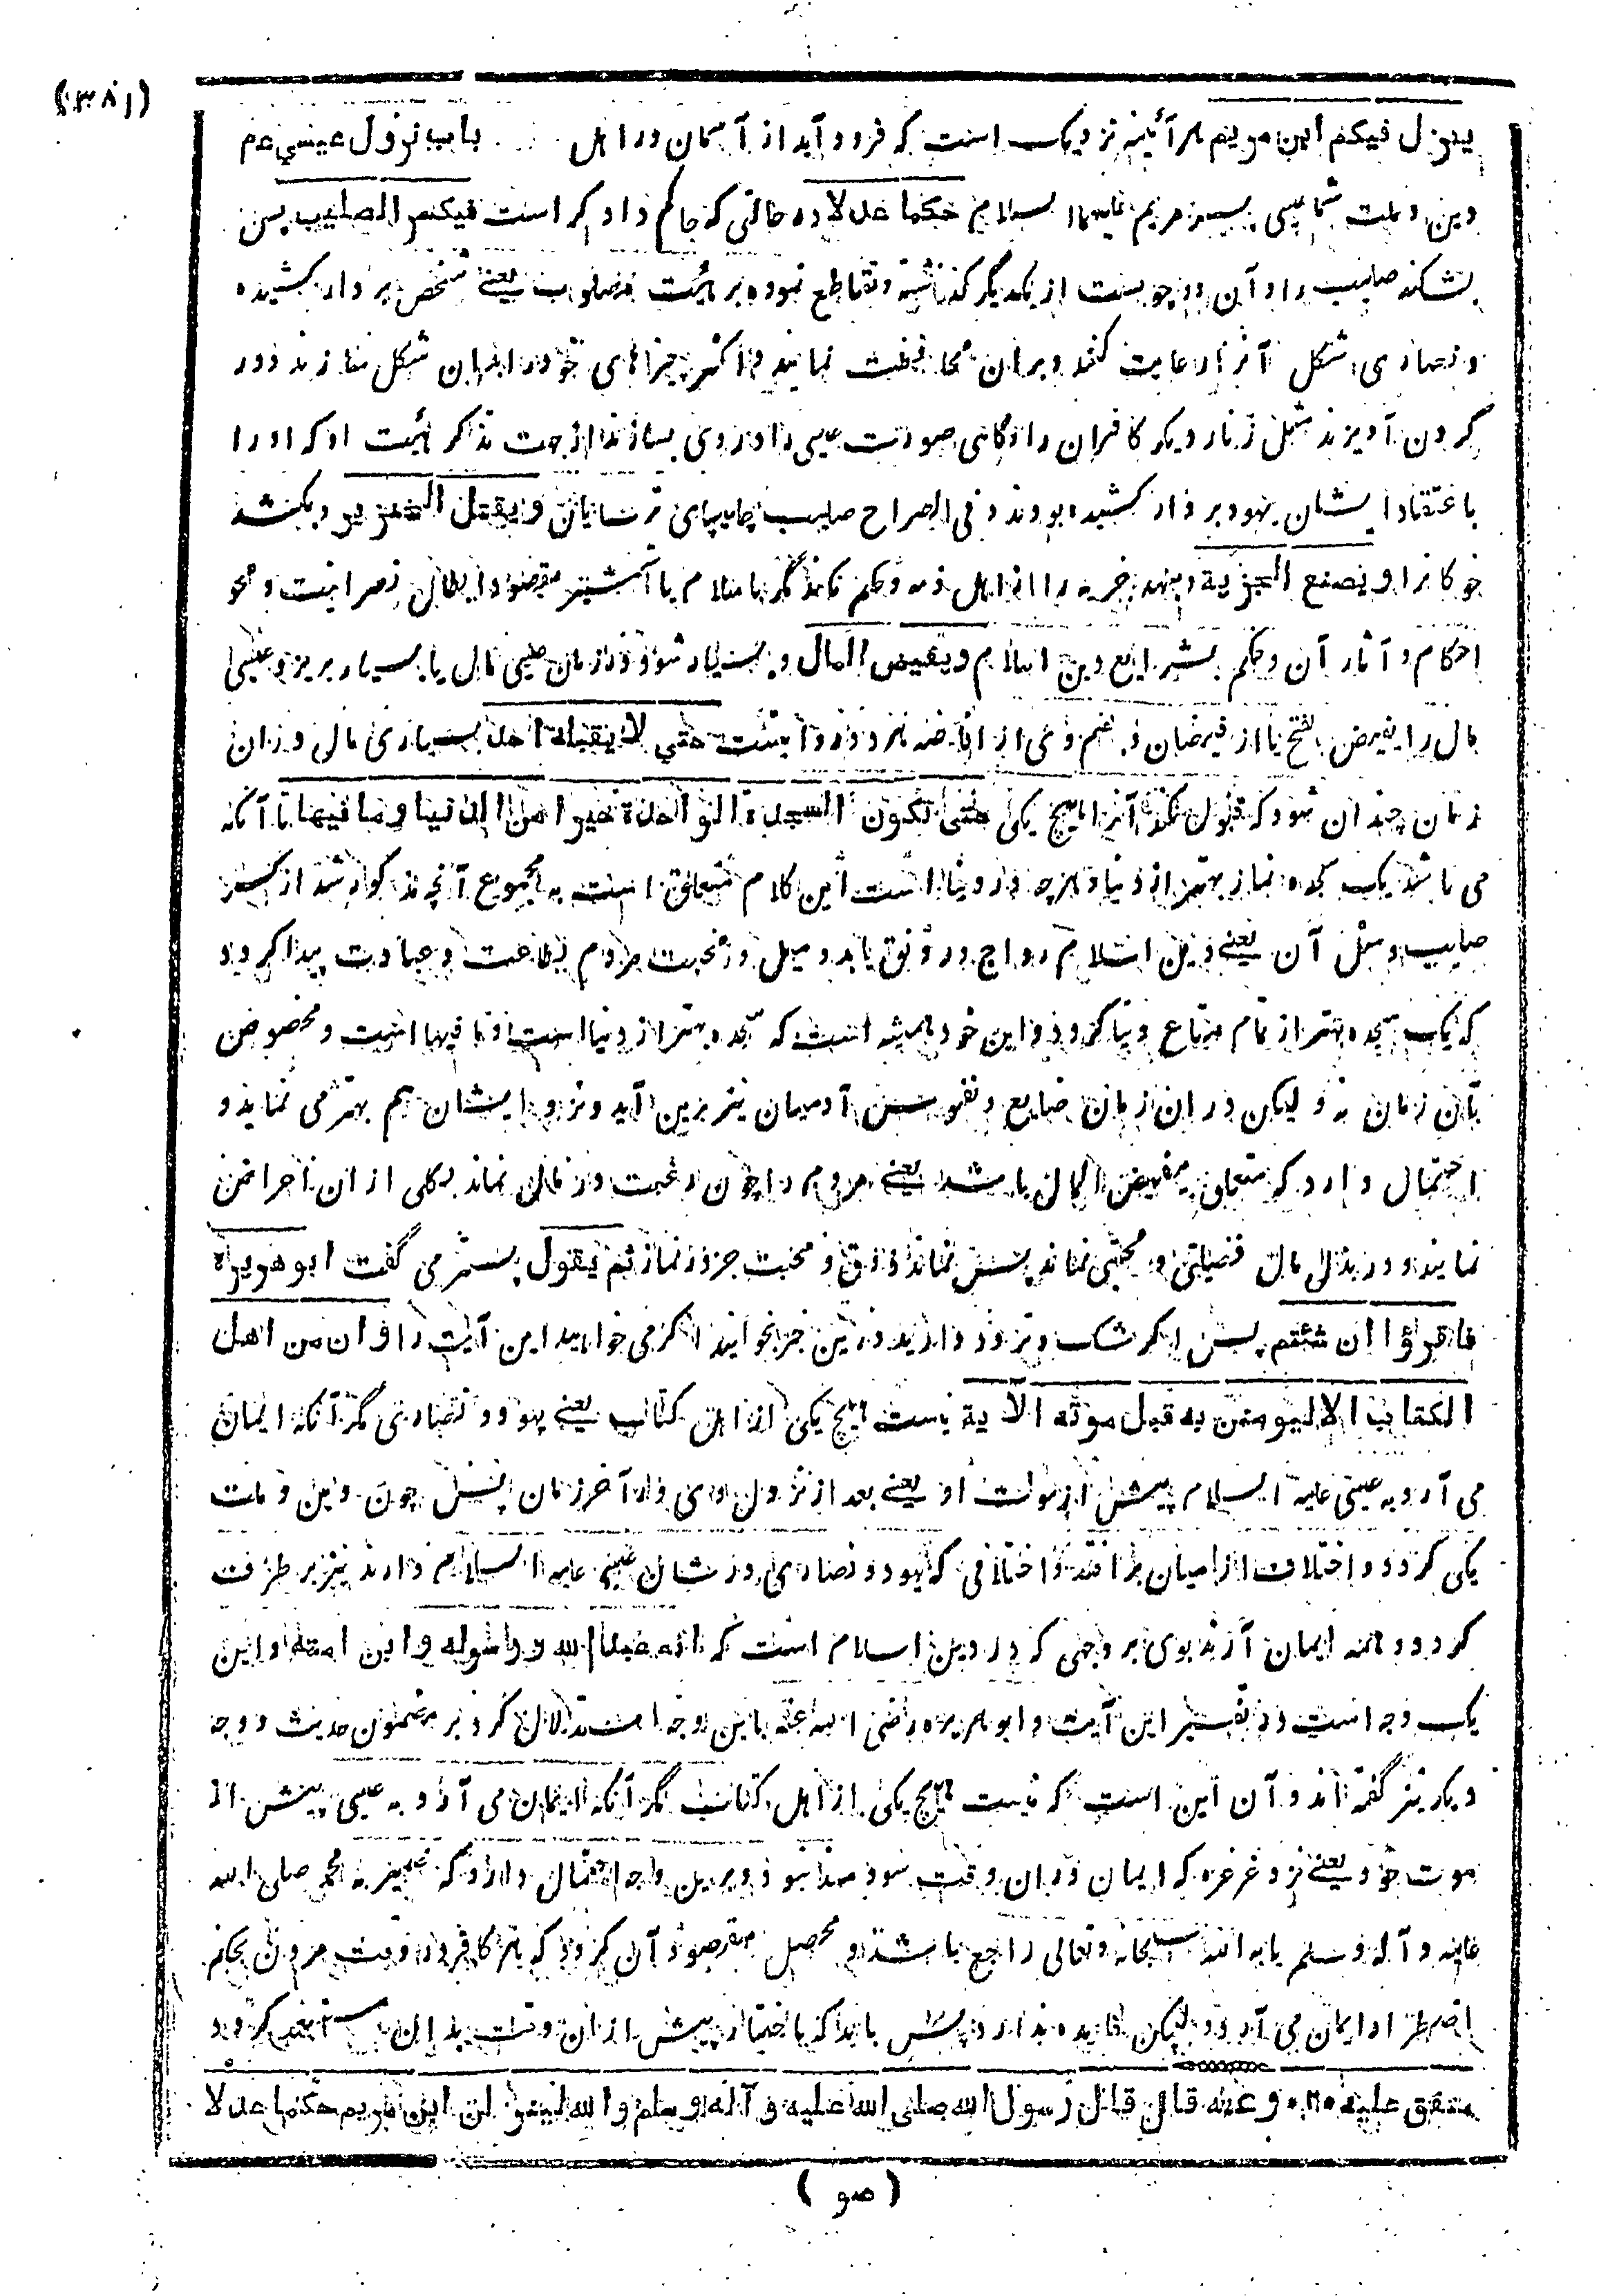 (۳۸۱)
ینزل فیکم ابن مریم هر آئینه نزدیک است که فرود آید از آسمان در اهل باب نزول عیسی عم
دین و ملت شما عیسی پسر مریم علیهما السلام حکما عدلا در حالتی که حاکم دادگر است فیکسر الصلیب پس
بشکند صلیب را و آن دو چوبست از یکدیگر گذشته و تقاطع نموده بر هیئت مصلوب یعنے شخص بر دار کشیده
و نصاری شکل آنرا رعایت کنند و بران محافظت نمایند و اکثر چیزهای خود را بران شکل سازند و در
گردن آویزند مثل زنار دیگر کافران را و گاهی صورت عیسی را در وی بسازند از جهت تذکر هیئت او که او را
باعتقاد ایشان یهود بر دار کشیده بودند و فی الصراح صلیب چلیپای ترسایان و یقتل الخنزیر و بکشد
خوکانرا و یضع الجزیة و بنهد جزیه را از اهل ذمه و حکم نکند مگر باسلام یا آنستر مقصود ابطال نصرانیت و محو
احکام و آثار آن و حکم بشرایع دین اسلام و یفیض المال و بسیار شود در زمان عیسی مال یا بسیار بریزد عیسی
مال را یفیض بفتح یا از فیضان و بضم وی از افاضه هر دو روایتست حتی لا یقبله احد بسیاری مال در آن
زمان چندان شود که قبول نکند آنرا هیچ یکی حتی تکون السجدة الواحدة خیرا من الدنیا و ما فیها تا آنکه
می باشد یک سجده نماز بهتر از دنیا و هر چه در دنیا است این کلام متعلق است به مجموع آنچه مذکور شد از کسر
صلیب و مثل آن یعنے دین اسلام رواج و رونق یابد و میل و محبت مردم بطاعت و عبادت پیدا گردد
که یک سجده بهتر از تمام متاع دنیا گردد و این خود همیشه است که سجده بهتر از دنیا است و ما فیها است و مخصوص
بآن زمان نه و لیکن در ان زمان ضایع و نفوس آدمیان نیز برین آید و نزد ایشان هم بهتر می نماید و
احتمال دارد که متعلق بیفیض المال باشد یعنے مردم را چون رغبت در مال نماند بکلی از ان اعراض
نمایند و در بذل مال فضیلتی و محبتی نماند پس نماند ذوق و محبت جز در نماز ثم یقول پستر می گفت ابو هریره
فاقرؤا ان شئتم پس اگر شک و تردد دارید درین خبر بخوانید اگر می خواهید این آیت را و ان من اهل
الکتاب الا لیومنن به قبل موته الآیة نیست هیچ یکی از اهل کتاب یعنے یهود و نصاری مگر آنکه ایمان
می آرد به عیسی علیه السلام پیش از موت او یعنے بعد از نزول وی در آخر زمان پس چون دین و ملت
یکی گردد و اختلاف از میان بر افتد و اختلافی که یهود و نصاری در شان عیسی علیه السلام دارند نیز بر طرف
گردد و همه ایمان آرند بوی بر وجهی که در دین اسلام است که انه عبد الله و رسوله و ابن امته و این
یک وجه است در تفسیر این آیت و ابو هریره رضی الله عنه باین وجه استدلال کرد بر مضمون حدیث و وجه
دیگر نیز گفته اند و آن این است که نیست هیچ یکی از اهل کتاب مگر آنکه ایمان می آرد به عیسی پیش از
موت خود یعنے نزد غرغره که ایمان در ان وقت سودمند نبود و برین وجه احتمال دارد که ضمیر به محمد صلی الله
علیه و آله و سلم یا به الله سبحانه و تعالی راجع باشد و محصل مقصود آن گردد که هر کافر در وقت مردن بحکم
اضطرار ایمان می آرد و لیکن فایده ندارد پس باید که باختیار پیش از ان وقت بدان مستفید گردد
متفق علیه ۲۰ و عنه قال قال رسول الله صلی الله علیه و آله و سلم و الله لینزلن ابن مریم حکما عدلا
(صو)